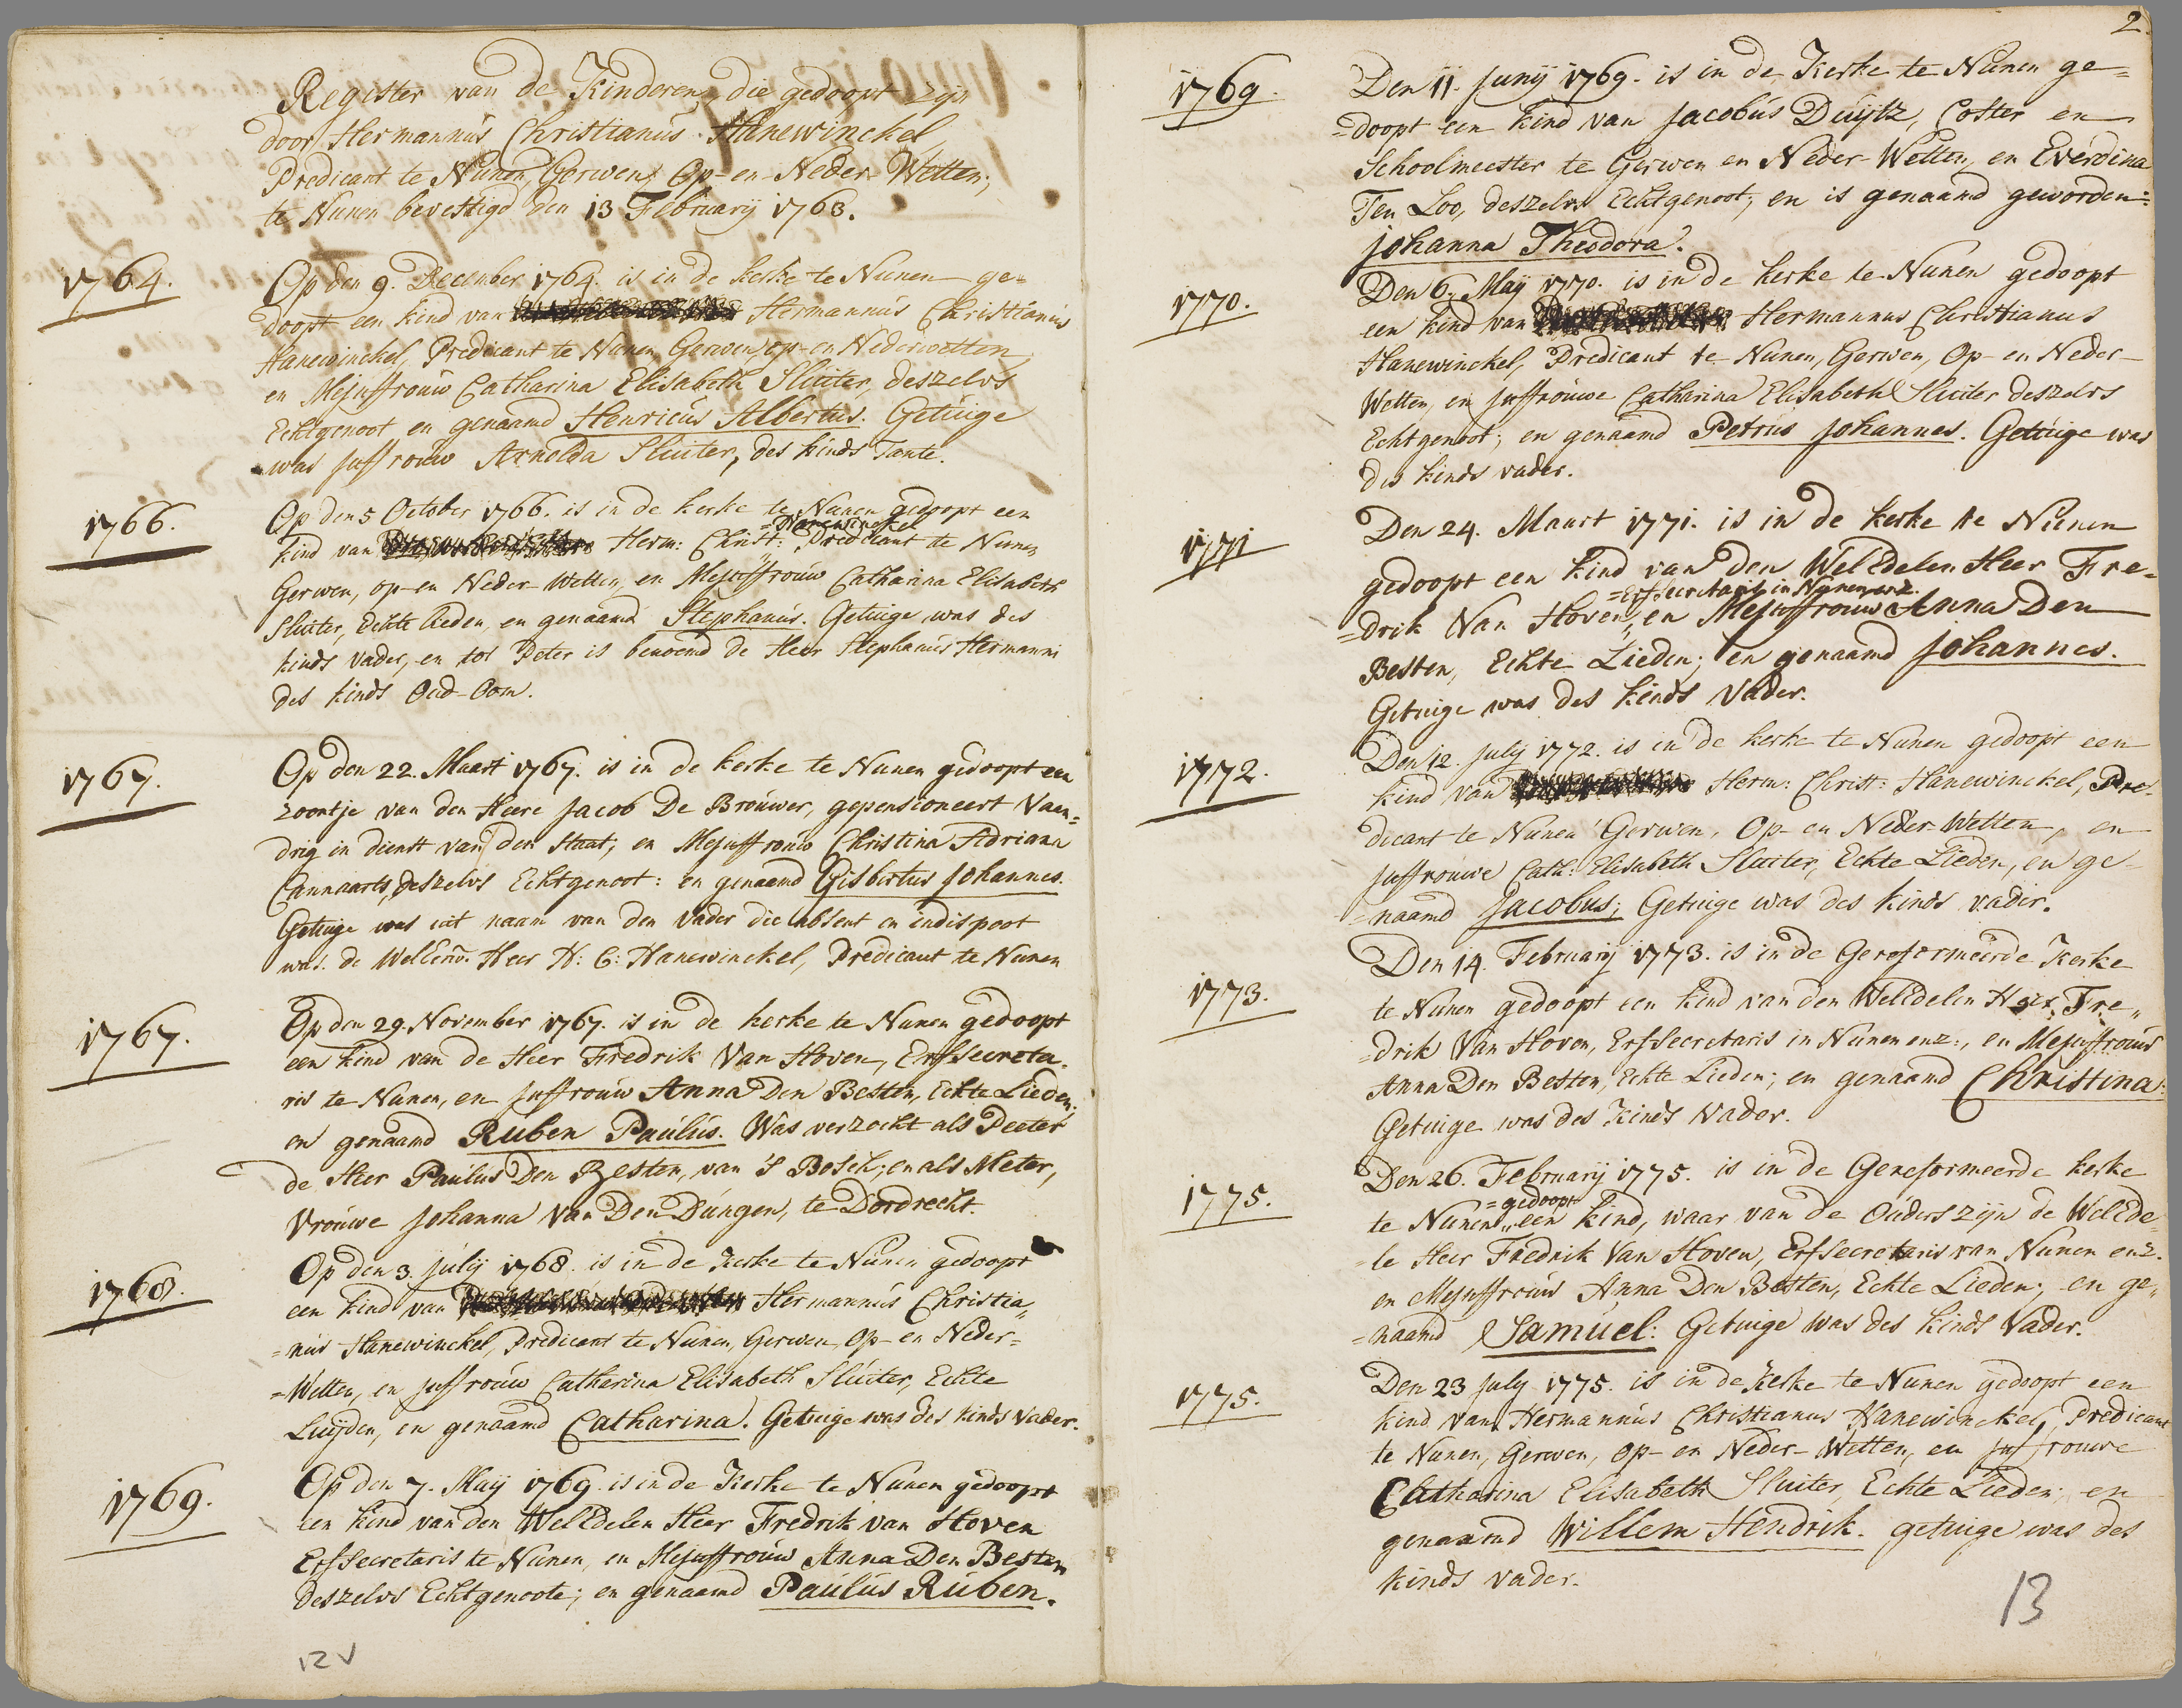 Register van de Kinderen, die gedoopt zijn
door Hermannus Christianus Hanewinckel,
Predicant te Nunen, Gerwen, Op- en Neder-Wetten,
te Nunen bevestigd den 13 February 1763.
1764.
Op den 9. December 1764. is in de kerke te Nunen ge=
doopt een kind van Hermannus Christianus
Hanewinckel, Predicant te Nunen, Gerwen, op- en Nederwetten
en Mejuffrouw Catharina Elisabeth Sluiter, deszelvs
Echtgenoot en genaamd Henricus Albertus. Getuige
was Juffrouw Arnolda Sluiter, des kinds Tante.
1766.
Op den 5 October 1766. is in de kerke te Nunen gedoopt een
=Hanewinckel
kind van Herm: Christ: Predicant te Nunen
Gerwen, op- en Neder-Wetten, en Mejuffrouw Catharina Elisabeth
Sluiter, Echte lieden, en genaamd Stephanus. Getuige was des
kinds vader, en tot Peter is benoemd de Heer Stephanus Hermanni
des kinds Oud-Oom.
1767.
Op den 22. Maart 1767. is in de kerke te Nunen gedoopt een
zoontje van den Heere Jacob De Brouwer, gepensioneert Vaan=
drig in dienst van den Staat, en Mejuffrouw Christina Adriana
Cannaarts, deszelvs Echtgenoot: en genaamd Gisbertus Johannes.
Getuige was uit naam van den vader die absent en indispoot
was. de WelEerw. Heer H: C: Hanewinckel, Predicant te Nunen
1767.
Op den 29. November 1767. is in de kerke te Nunen gedoopt
een kind van de Heer Fredrik Van Hoven, Erfsecreta=
ris te Nunen, en Juffrouw Anna Den Besten, Echte Lieden;
en genaamd Ruben Paulus. Was verzocht als Peeter
de Heer Paulus Den Besten, van 's Bosch; en als Meter,
Vrouwe Johanna Van Den Dungen, te Dordrecht.
1768.
Op den 3. july 1768. is in de kerke te Nunen gedoopt
een kind van Hermannus Christia„
=nus Hanewinckel, Predicant te Nunen, Gerwen, Op- en Neder=
=Wetten, en juffrouw Catharina Elisabeth Sluiter, Echte
Luijden, en genaamd Catharina. Getuige was des kinds vader.
1769.
Op den 7. Maij 1769. is in de Kerke te Nunen gedoopt
een kind van den WelEdelen Heer Fredrik van Hoven
Erfsecretaris te Nunen, en Mejuffrouw Anna Den Besten
deszelvs Echtgenoote; en genaamd Paulus Ruben.
12 v
2.
1769.
Den 11. Junij 1769. is in de Kerke te Nunen ge=
=doopt een kind van Jacobus Duijtz, Coster en
Schoolmeester te Gerwen en Neder-Wetten, en Everdina
Ten Loo, deszelvs Echtgenoot; en is genaamd geworden:
Johanna Theodora.
1770.
Den 6. Maij 1770. is in de kerke te Nunen gedoopt
een kind van Hermannus Christianus
Hanewinckel, Predicant te Nunen, Gerwen, Op- en Neder-
Wetten, en Juffrouwe Catharina Elisabeth Sluiter deszelvs
Echtgenoot; en genaamd Petrus Johannes. Getuige was
des kinds vader.
1771
Den 24. Maart 1771. is in de kerke te Nunen
gedoopt een kind van den WelEdelen Heer Fre=
=Erfsecretaris in Nunen enz.
=drik Van Hoven„ en Mejuffrouw Anna Den
Besten, Echte Lieden; en genaamd Johannes.
Getuige was des kinds Vader.
1772.
Den 12. July 1772. is in de kerke te Nunen gedoopt een
kind van Herm: Christ: Hanewinckel, Pre-
dicant te Nunen Gerwen, Op- en Neder-Wetten, en
Juffrouwe Cath: Elisabeth Sluiter, Echte Lieden, en ge-
=naamd Jacobus; Getuige was des kinds vader.
1773.
Den 14. February 1773. is in de Gereformeerde Kerke
te Nunen gedoopt een kind van den WelEdelen Heer Fre„
=drik Van Hoven, Erfsecretaris in Nunen enz:, en Mejuffrouw
Anna Den Besten, Echte Lieden; en genaamd Christina:
Getuige was des Kinds Vader.
1775.
Den 26. Februarij 1775. is in de Gereformeerde kerke
=gedoopt
te Nunen„ een kind, waar van de Ouders zijn de WelEde=
=le Heer Fredrik Van Hoven, Erfsecretaris van Nunen enz.
en Mejuffrouw Anna Den Besten, Echte Lieden; en ge„
=naamd Samuel: Getuige was des kinds Vader.
1775.
Den 23 July 1775. is in de Kerke te Nunen gedoopt een
kind van Hermannus Christianus Hanewinckel, Predicant
te Nunen, Gerwen, op- en Neder-Wetten, en Juffrouwe
Catharina Elisabeth Sluiter, Echte Lieden; en
genaamd Willem Hendrik. getuige was des
kinds vader.
13